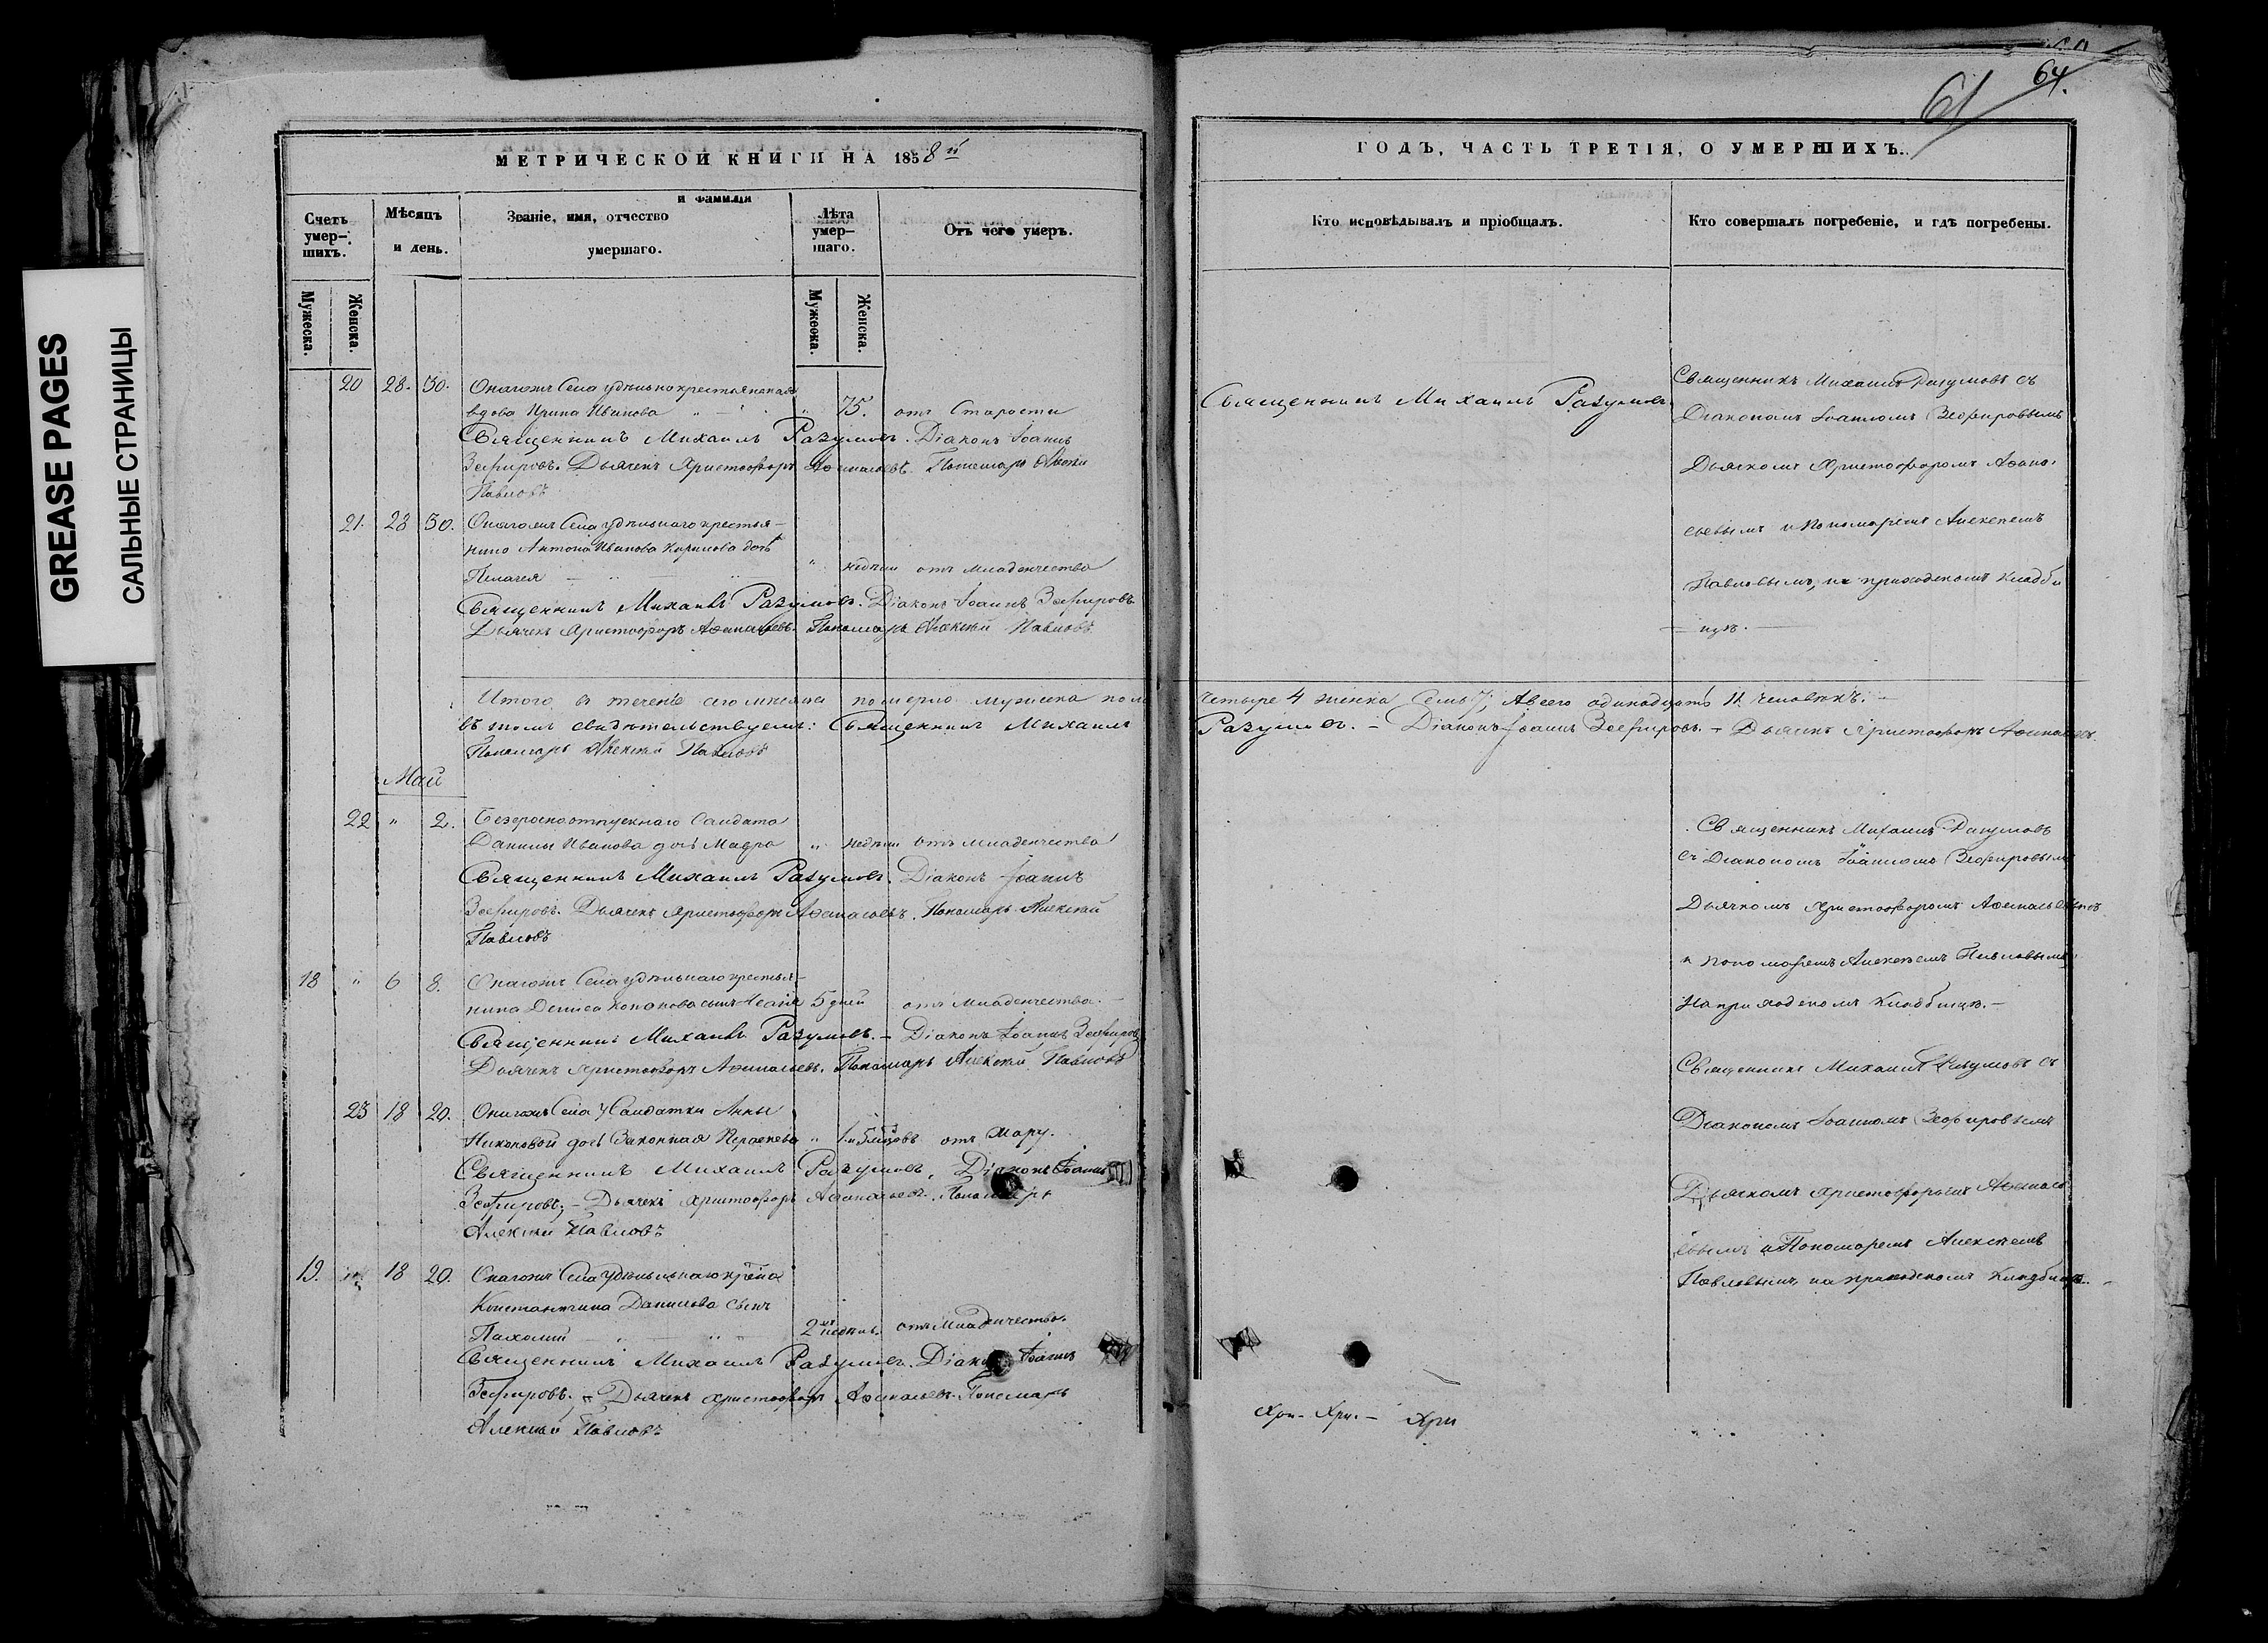 GREASE PAGES
САЛЬНЫЕ СТРАНИЦЫ
МЕТРИЧЕСКОЙ КНИГИ НА 1858й
Счетъ умер-шихъ.
Мѣсяцъ и день.
Званіе, имя, отчество и фамилія умершаго.
Лѣта умер-шаго.
Отъ чего умеръ.
Мужеска.
Женска.
Мужеска.
Женска.
20 28. 30. Онагожъ Села удѣльнокрестьянская
вдова Ирина Иванова " 75. отъ Старости
Священникъ Михаилъ Разумовъ. Діаконъ Іоаннъ
Зефировъ. Дьячекъ Христофоръ Афанасьевъ. Пономарь Алексѣй
Павловъ
21. 28 30. Онагожъ Села удѣльнаго крестья-
нина Антона Иванова дочь
Пелагея " недѣли отъ младенчества
Священникъ Михаилъ Разумовъ. Діаконъ Іоаннъ Зефировъ
Дьячекъ Христофоръ Афанасьевъ. Пономарь Алексѣй Павловъ
Итого въ теченіе сего мѣсяца померло мужеска пола
въ томъ свидѣтельствуемъ: Священникъ Михаилъ
Пономарь Алексѣй Павловъ
Май
22 " 2. Безсрочноотпускнаго Солдата
Данилы Иванова дочь Мавра " недѣли отъ младенчества
Священникъ Михаилъ Разумовъ. Діаконъ Іоаннъ
Зефировъ. Дьячекъ Христофоръ Афанасьевъ. Пономарь Алексѣй
Павловъ
18 " 6 8. Онагожъ Села удѣльнаго крестья-
нина Дениса Кононова сынъ 5 дней отъ младенчества. –
Священникъ Михаилъ Разумовъ. – Діаконъ Іоаннъ Зефировъ
Дьячекъ Христофоръ Афанасьевъ. Пономарь Алексѣй Павловъ
23 18 20. Онагожъ Села у Солдатки Анны
Никоновой дочь Законная " отъ жару.
Священникъ Михаилъ Разумовъ, Діаконъ Іоаннъ
Зефировъ; – Дьячекъ Христофоръ Афанасьевъ. Пономарь
Алексѣй Павловъ
19. 18 20. Онагожъ Села удѣльнаго
Константина Данилова сынъ
Пахомій 2 недѣль. отъ младенчества.
Священникъ Михаилъ Разумовъ. Діаконъ Іоаннъ
Зефировъ. – Дьячекъ Христофоръ Афанасьевъ. Пономарь
Алексѣй Павловъ
61
64.
ГОДЪ, ЧАСТЬ ТРЕТІЯ, О УМЕРШИХЪ.
Кто исповѣдывалъ и пріобщалъ.
Кто совершалъ погребеніе, и гдѣ погребены.
Священникъ Михаилъ Разумовъ
Священникъ Михаилъ Разумовъ съ
Діакономъ Іоанномъ Зефировымъ
Дьячкомъ Христофоромъ Афана-
сьевымъ и Пономаремъ Алексѣемъ
Павловымъ, на приходскомъ кладби
– щѣ. –
Четыре 4 женска Семь 7, А всего одинадцать 11 человѣкъ. –
Разумовъ. – Діаконъ Іоаннъ Зефировъ. – Дьячекъ Христофоръ Афанасьевъ.
Священникъ Михаилъ Разумовъ
съ Діакономъ Іоанномъ Зефировымъ
Дьячкомъ Христофоромъ Афанасьевымъ
и пономаремъ Алексѣемъ Павловымъ
На приходскомъ кладбищѣ. –
Священникъ Михаилъ Разумовъ съ
Діакономъ Іоанномъ Зефировымъ
Дьячкомъ Христофоромъ Афанась
евымъ и Пономаремъ Алексѣемъ
Павловымъ, на приходскомъ Кладбищѣ. –
Хри- Хри. – Хри